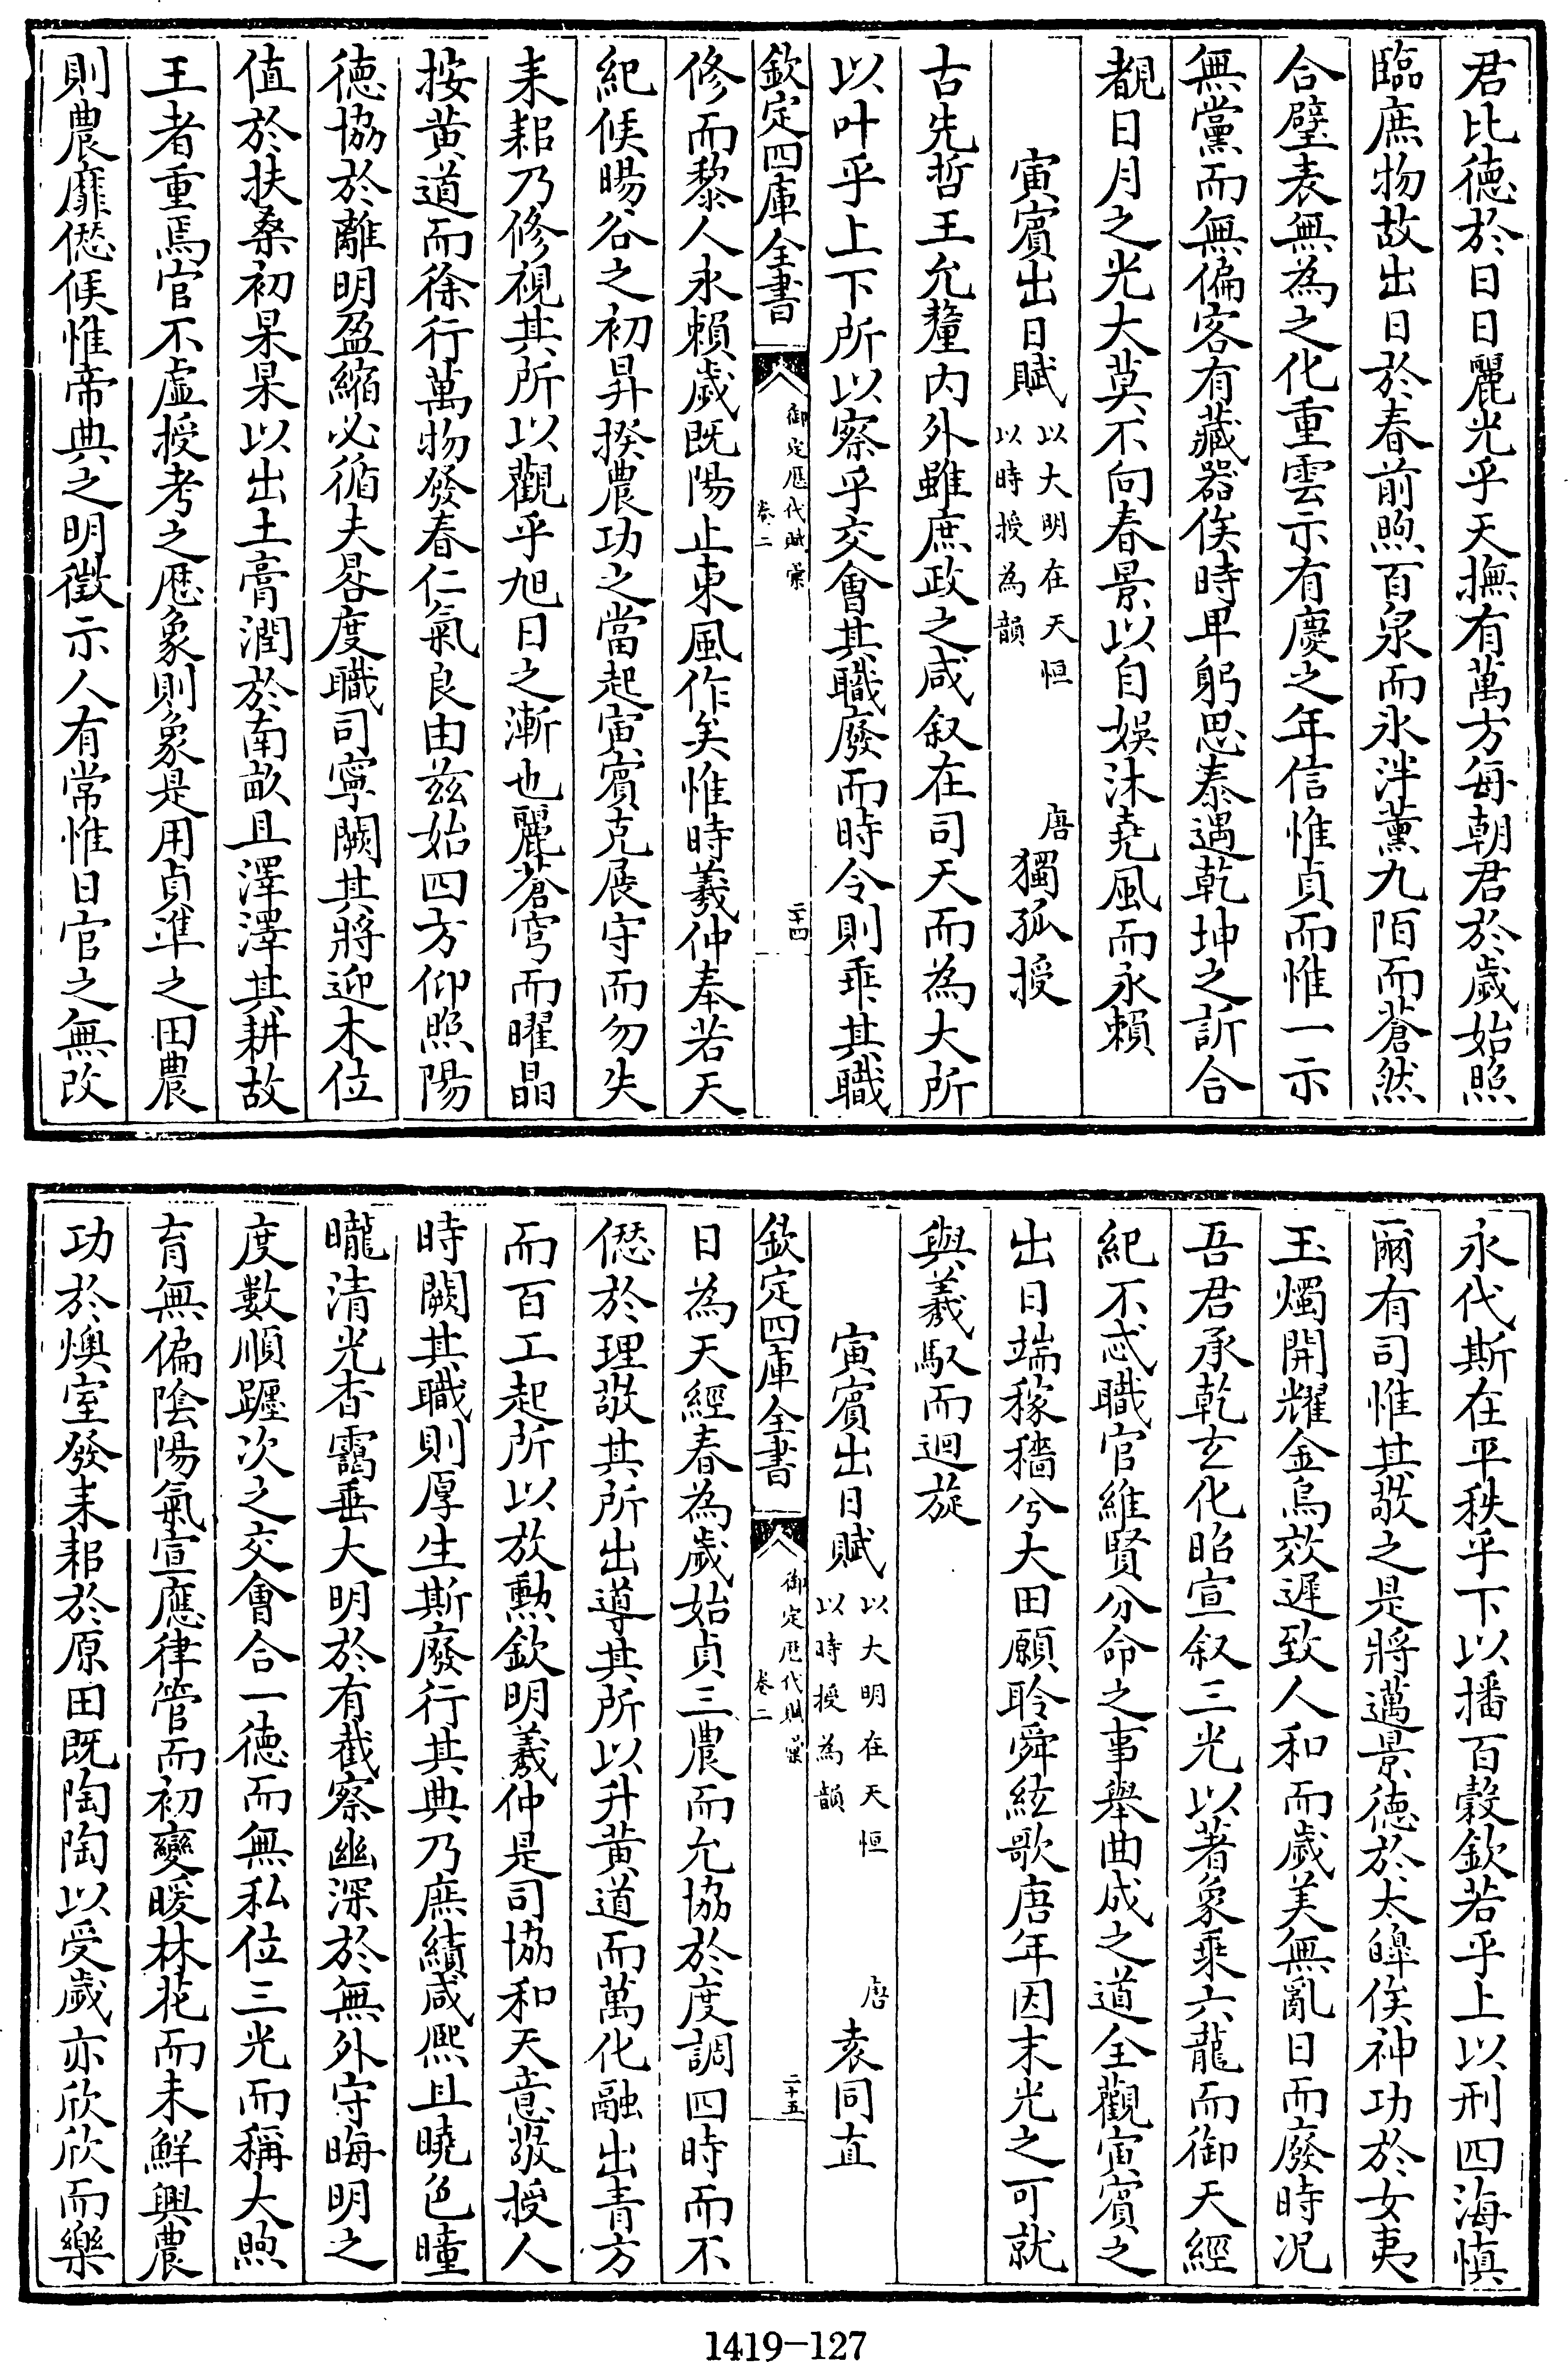 君比德於日日麗光乎天撫有萬方每朝君於歲始照
臨庶物故出日於春前煦百泉而氷泮薰九陌而蒼然
合璧表無為之化重雲示有慶之年信惟貞而惟一示
無黨而無偏客有藏器俟時卑躬思泰遇乾坤之訢合
覩日月之光大莫不向春景以自娛沐堯風而永賴
寅賓出日賦 以大明在天恒以時授為韻 唐 獨孤授
古先哲王允釐内外雖庶政之咸叙在司天而為大所
以叶乎上下所以察乎交會其職廢而時令則乖其職
欽定四庫全書 御定歷代賦彙 卷二 二十四
修而黎人永賴歲既陽止東風作矣惟時羲仲奉若天
紀候暘谷之初昇揆農功之當起寅賓克展守而勿失
耒耜乃修視其所以觀乎旭日之漸也麗蒼穹而曜晶
按黄道而徐行萬物發春仁氣良由兹始四方仰照陽
德協於離明盈縮必循夫晷度職司寧闕其將迎木位
值於扶桑初杲杲以出土膏潤於南畝且澤澤其耕故
王者重焉官不虚授考之歷象則象是用貞準之田農
則農靡愆候惟帝典之明徵示人有常惟日官之無改
永代斯在平秩乎下以播百穀欽若乎上以刑四海慎
爾有司惟其敬之是將邁景德於太皥俟神功於女夷
玉燭開耀金烏效遲致人和而歲美無亂日而廢時况
吾君承乾玄化昭宣叙三光以著象乘六龍而御天經
紀不忒職官維賢分命之事舉曲成之道全觀寅賓之
出日端稼穡兮大田願聆舜絃歌唐年因末光之可就
與羲馭而迴旋
寅賓出日賦 以大明在天恒以時授為韻 唐 袁同直
欽定四庫全書 御定歷代賦彙 卷二 二十五
日為天經春為歲始貞三農而允協於度調四時而不
愆於理敬其所出導其所以升黄道而萬化融出青方
而百工起所以放勲欽明羲仲是司協和天意敬授人
時闕其職則厚生斯廢行其典乃庶績咸熙且曉色瞳
曨清光杳靄垂大明於有截察幽深於無外守晦明之
度數順躔次之交會合一德而無私位三光而稱大煦
育無偏陰陽氣宣應律管而初變暖林花而未鮮興農
功於燠室發耒耜於原田既陶陶以受歲亦欣欣而樂
1419-127